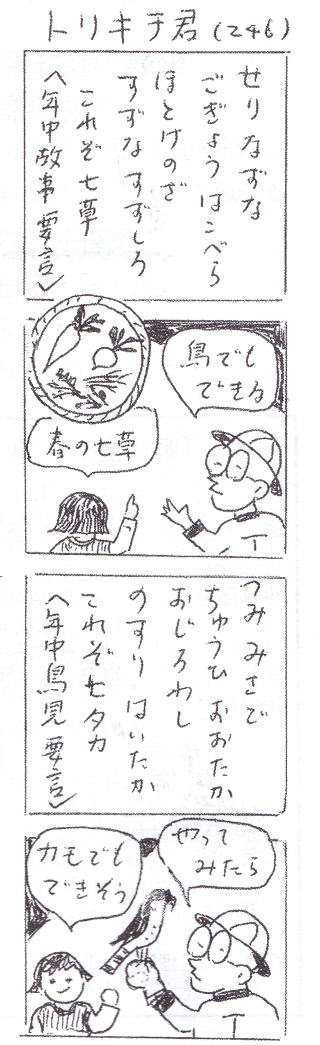 トリキチ君 (246)
せりなずな
ごぎょうはこべら
ほとけのざ
すずなすずしろ
これぞ七草
〈年中故事要言〉
鳥でも
できる
春の七草
つみみさご
ちゅうひおおたか
おじろわし
のすりはいたか
これぞ七タカ
〈年中鳥見要言〉
やって
みたら
カモでも
できそう